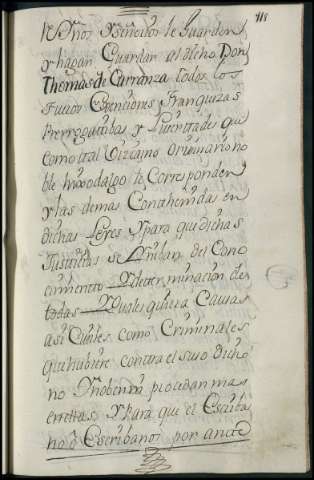 111
Reynos y señorios le Guarden
y hagan Guardar al dicho Don
Thomas de Carranza todos los
fueros Exenciones y franquezas
Prerrogatibas y Livertades que
como tal Vizcaino Originario no
ble hixodalgo le Corresponden
y las demas Conthenidas en
dichas Leyes Y para que dichas
Justicias se Ynhiban del Cono
cimiento Y determinacion de
todas Y quales quiera Causas
asi Civiles como Criminales
que hubiere contra el suso dicho
no procedan mas
en ellas Y Para que el Escriba
no ô Escribanos por ante